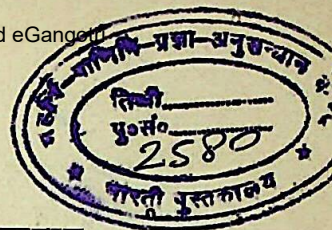 d eGangotri
महर्षि पाणिनि प्रज्ञा अनुसन्धान
तिथी
पु०सं०
2580
भारती पुस्तकालय